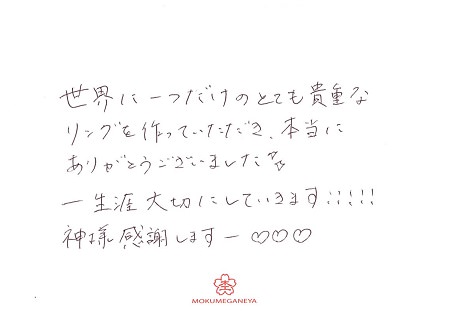 世界に一つだけのとても貴重な
リングを作っていただき、本当に
ありがとうございました
一生涯大切にしていきます!!!!!
神様感謝しますー♡♡♡
MOKUMEGANEYA